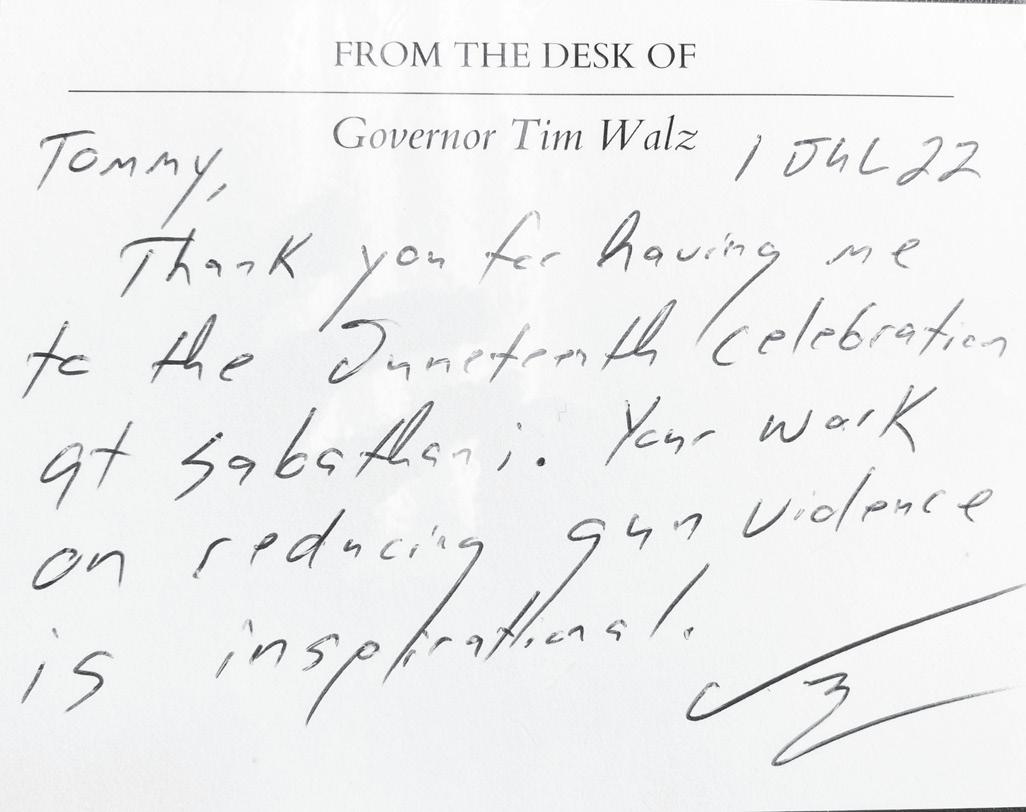 FROM THE DESK OF
Governor Tim Walz
Tommy, 1 JUL 22
Thank you for having me
to the Juneteenth celebration
at Sabathani. Your work
on reducing gun violence
is inspirational.